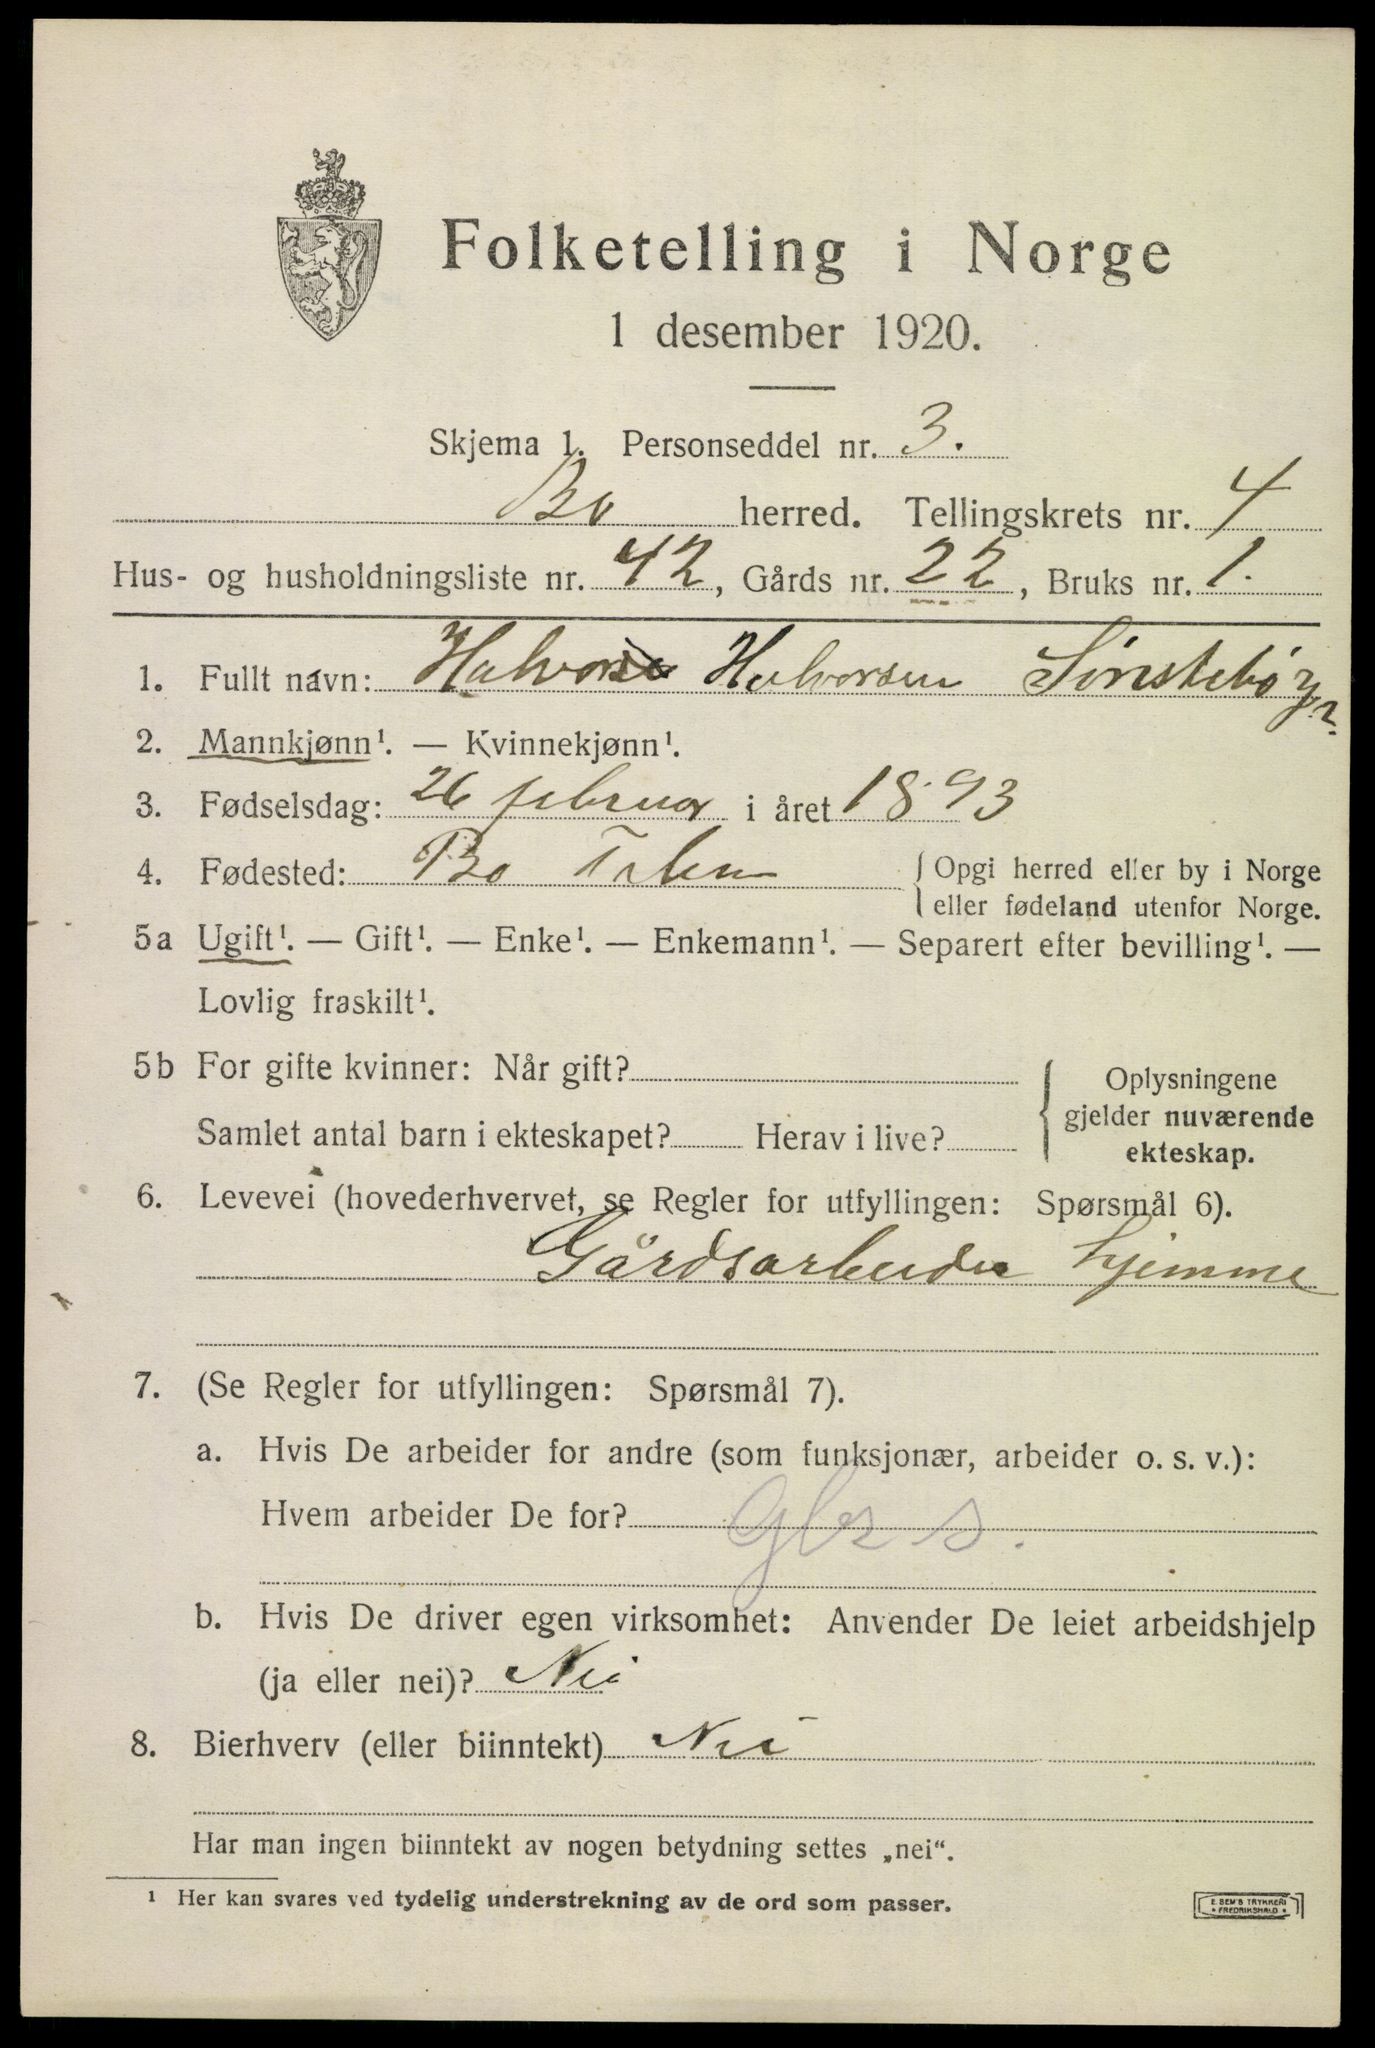 Folketelling i Norge
1 desember 1920.
Skjema 1. Personseddel nr. 3.
Bø herred. Tellingskrets nr. 4
Hus- og husholdningsliste nr. 42, Gårds nr. 22, Bruks nr. 1.
1. Fullt navn: Halvor Halvorsen Sønstebø
2. Mannkjønn¹. — Kvinnekjønn¹.
3. Fødselsdag: 26 februar i året 1893
4. Fødested: Bø Telem {Opgi herred eller by i Norge
eller fødeland utenfor Norge.
5a Ugift¹. — Gift¹. — Enke¹. — Enkemann¹. — Separert efter bevilling¹. —
Lovlig fraskilt¹.
5b For gifte kvinner: Når gift?
Samlet antal barn i ekteskapet? Herav i live?
{Oplysningene
gjelder nuværende
ekteskap.
6. Levevei (hovederhvervet, se Regler for utfyllingen: Spørsmål 6).
Gårdsarbeider hjemme
7. (Se Regler for utfyllingen: Spørsmål 7).
a. Hvis De arbeider for andre (som funksjonær, arbeider o. s. v.):
Hvem arbeider De for? Gbr s.
b. Hvis De driver egen virksomhet: Anvender De leiet arbeidshjelp
(ja eller nei)? Nei
8. Bierhverv (eller biinntekt) Nei
Har man ingen biinntekt av nogen betydning settes „nei“.
¹ Her kan svares ved tydelig understrekning av de ord som passer.
E. SEM'S TRYKKERI
• FREDRIKSHALD •